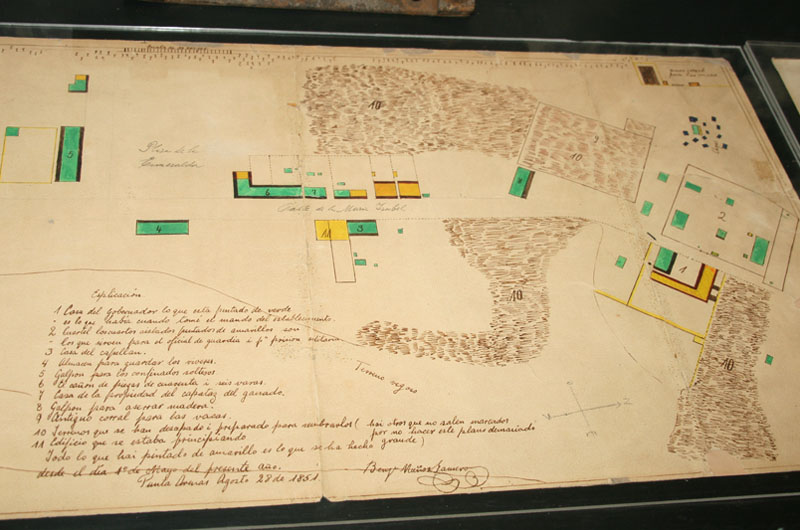 Plaza de la
Esmeralda
Calle de la María Isabel
Terreno vegoso
Explicación
1 Casa del gobernador lo que esta pintado de verde
es lo que había cuando tomé el mando del establecimiento.
2 Cuartel los cuartos pintados de amarillos son
los que sirven para el oficial de guardia i pª prision militar
3 Casa del capellan.
4 Almacen para guardar los viveres.
5 Galpon para los confinados solteros
6 El cañon de piezas de cuarenta i seis varas.
7 Casa de la propiedad del capataz del ganado.
8 Galpon para aserrar madera.
9 Antiguo corral para las vacas.
10 Terrenos que se han desapado i preparado para sembrarlos ( hai otros que no salen marcados
por no hacer este plano demasiado
grande )
11 Edificio que se estaba principiando
Todo lo que hai pintado de amarillo es lo que se ha hecho
desde el dia 1º de Mayo del presente año.
Punta Arenas Agosto 28 de 1851.
Benjⁿ Muñoz Gamero
10
9
10
5
6
7
8
2
4
11
3
1
10
10